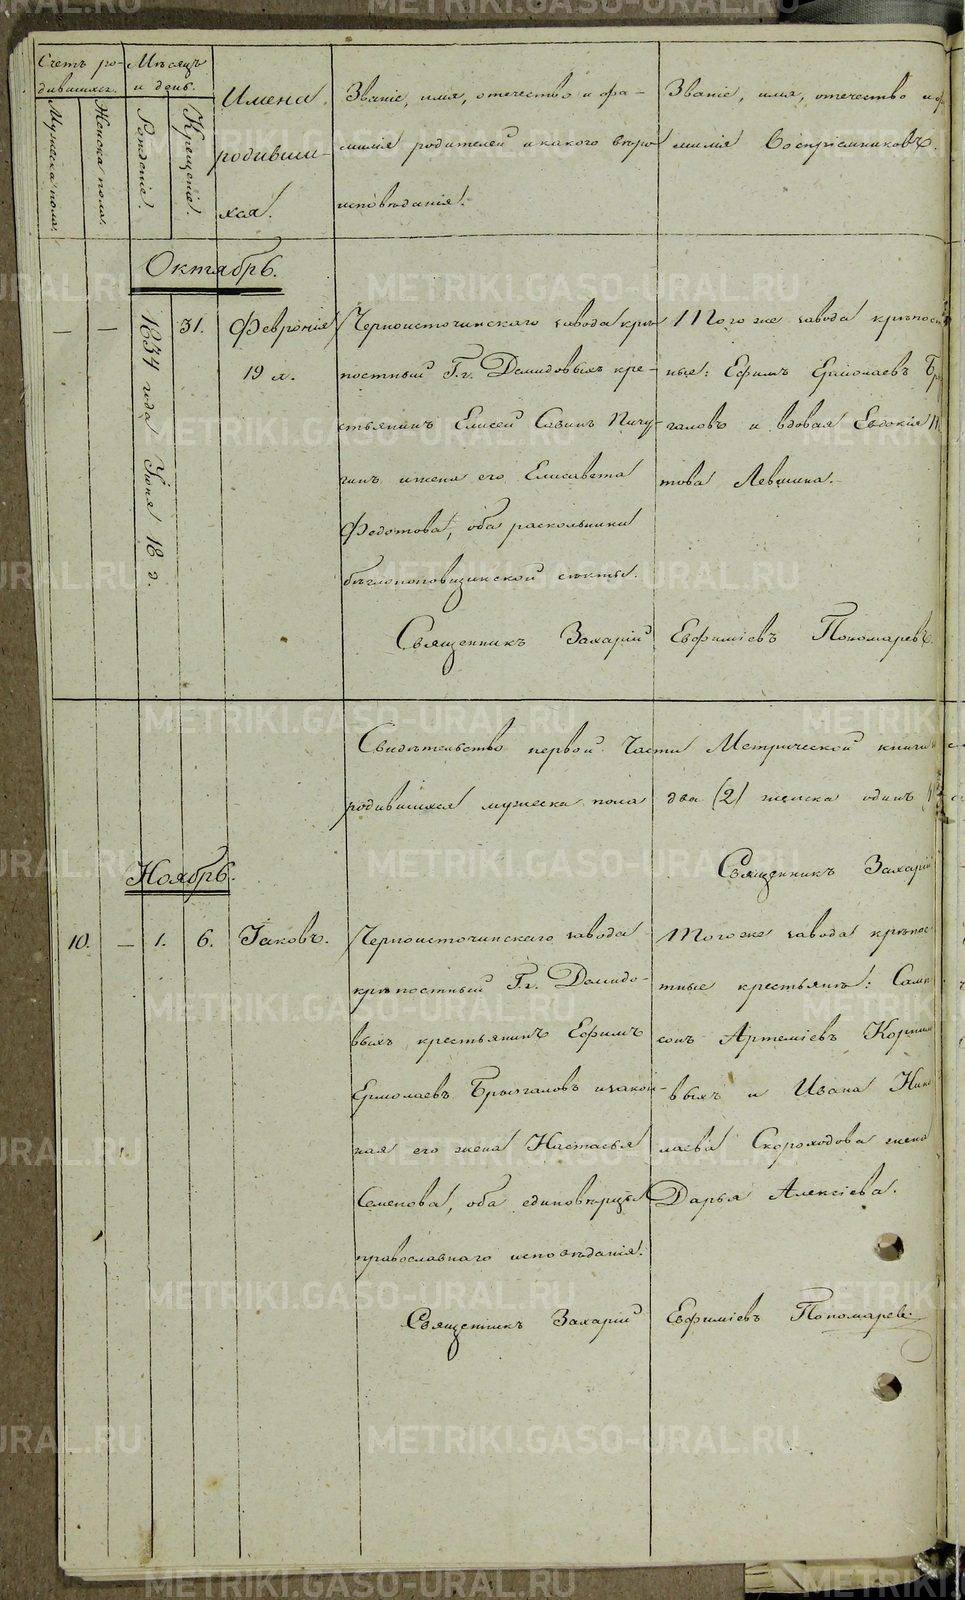 Счетъ ро-
дившихся.
Мѣсяцъ
и день.
Мужеска пола.
Женска пола.
Рожденіе.
Крещеніе.
Имена
родивши-
хся.
Званіе, имя, отечество и фа-
милія родителей и какого вѣро
исповѣданія.
Званіе, имя, отечество и фа
милія Воспріемниковъ.
Октябрь.
— — 1834 года Іюня 18 д. 31. Февронія
19 л.
Черноисточинскаго завода крѣ
постный Г.г. Демидовыхъ кре-
стьянинъ Елисей Савинъ Пичу-
гинъ и жена его Елисавета
Федотова, оба раскольники
бѣглопоповщинской секты.
Того же завода крѣпост
ные: Ефимъ Ермолаевъ Бр
галовъ и вдовая Евдокія
това Левшина.
Священникъ Захарій Евфиміевъ Пономаревъ.
Свидѣтельство первой Части Метрической книги
родившихся мужеска пола два (2) женска одинъ (1
Священникъ Захарій
Ноябрь.
10. — 1. 6. Іаковъ.
Черноисточинскаго завода
крѣпостный Г.г. Демидо-
выхъ крестьянинъ Ефимъ
Ермолаевъ Брызгаловъ и закон-
ная его жена Настасья
Семенова, оба единовѣрцы
православнаго исповѣданія.
Того же завода крѣпос
тные крестьяне: Самп
сонъ Артеміевъ Корнил
выхъ и Ивана Нико
лаева Скороходова жена
Дарья Алексіева.
Священникъ Захарій Евфиміевъ Пономаревъ
METRIKI.GASO-URAL.RU